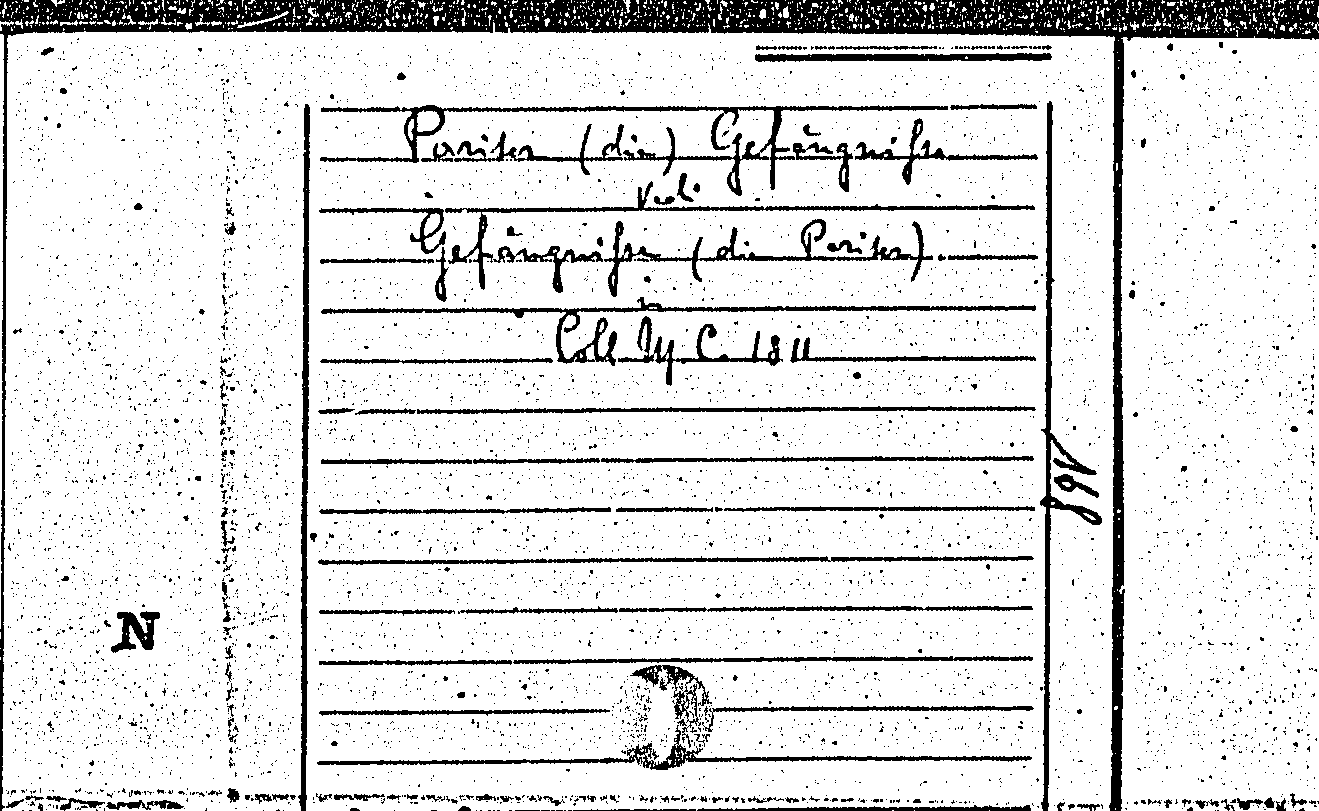 Pariser (die) Gefängnisse
Vid.
Gefängnisse (die Pariser).
in
Coll M C. 1811
168
N